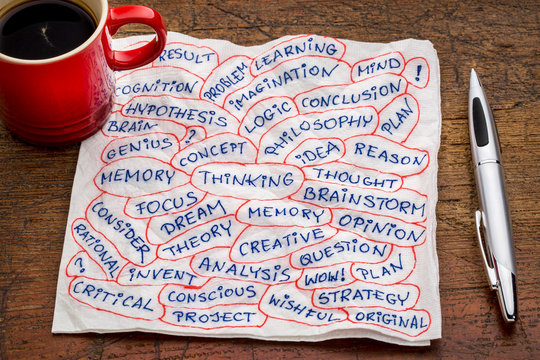 RESULT
PROBLEM
LEARNING
COGNITION
IMAGINATION
MIND
!
HYPOTHESIS
LOGIC
CONCLUSION
PLAN
BRAIN
?
PHILOSOPHY
GENIUS
CONCEPT
IDEA
REASON
MEMORY
THINKING
THOUGHT
FOCUS
BRAINSTORM
CONSIDER
DREAM
MEMORY
OPINION
RATIONAL
THEORY
CREATIVE
QUESTION
?
INVENT
ANALYSIS
WOW!
PLAN
CRITICAL
CONSCIOUS
WISHFUL
STRATEGY
PROJECT
ORIGINAL